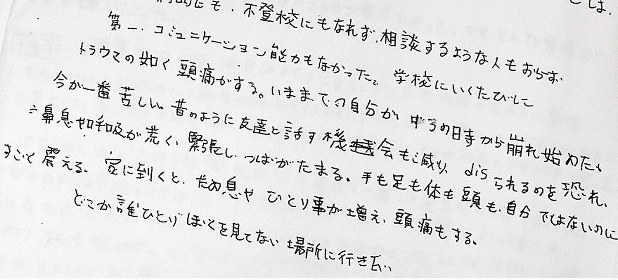 にも、不登校にもなれず、相談するような人もおらず
第一、コミュニケーション能力もなかった。学校にいくたびに
トラウマの如く頭痛がする。いままでの自分が、中3の時から崩れ始めた。
今が一番苦しい。昔のように友達と話す機会も減り、disられるのを恐れ、
鼻息や呼吸が荒く、緊張し、つばがたまる。手も足も体も頭も、自分ではないのに
すごく震える。家に到くと、ため息やひとり事が増え、頭痛もする。
どこか誰ひとりぼくを見てない場所に行きたい